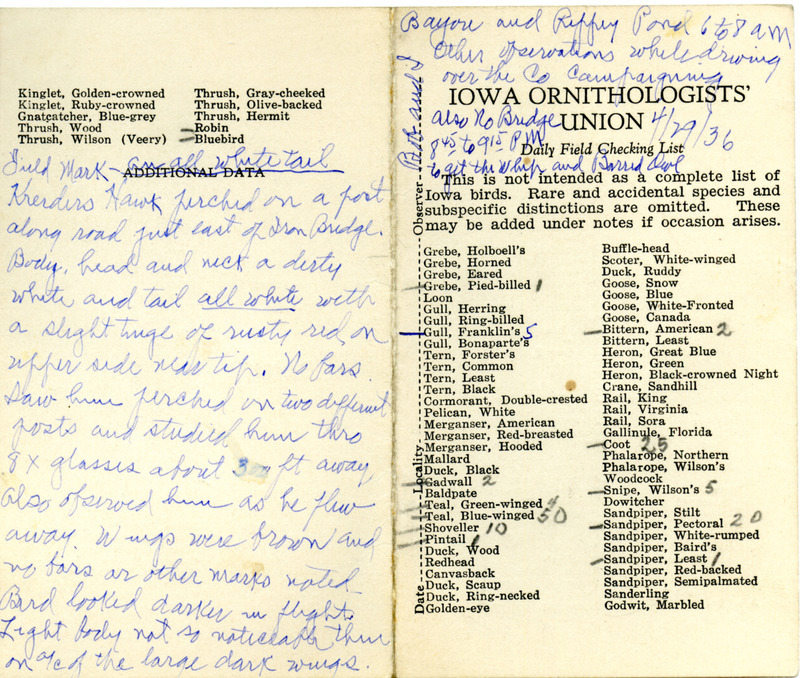 Kinglet, Golden-crowned
Kinglet, Ruby-crowned
Gnatcatcher, Blue-grey
Thrush, Wood
Thrush, Wilson (Veery)
Thrush, Gray-cheeked
Thrush, Olive-backed
Thrush, Hermit
Robin
Bluebird
Field Mark - an all white tail
ADDITIONAL DATA
Kreiders Hawk perched on a post
along road just east of Iron Bridge.
Body, head and neck a dirty
white and tail all white with
a slight tinge of rusty red on
upper side near tip. No bars
Saw him perched on two different
posts and studied him thro
8 x glasses about 30 ft away
Also observed him as he flew
away. Wings were brown and
no bars or other marks noted
Bird looked darker in flight
Light body not so noticeable then
on a/c of the large dark wings.
Bayou and Rippey Pond 6 to 8 am
Other observations while driving
over the Co campaigning
IOWA ORNITHOLOGISTS'
UNION 4/29/36
also No Bridge
8 45 to 9 15 PM
Daily Field Checking List
to get the Whip and Barred Owl
This is not intended as a complete list of
Iowa birds. Rare and accidental species and
subspecific distinctions are omitted. These
may be added under notes if occasion arises.
Date Locality Observer
Grebe, Holboell's
Grebe, Horned
Grebe, Eared
Grebe, Pied-billed 1
Loon
Gull, Herring
Gull, Ring-billed
Gull, Franklin's 5
Gull, Bonaparte's
Tern, Forster's
Tern, Common
Tern, Least
Tern, Black
Cormorant, Double-crested
Pelican, White
Merganser, American
Merganser, Red-breasted
Merganser, Hooded
Mallard
Duck, Black
Gadwall 2
Baldpate
Teal, Green-winged 4
Teal, Blue-winged 50
Shoveller 10
Pintail 1
Duck, Wood
Redhead
Canvasback
Duck, Scaup
Duck, Ring-necked
Golden-eye
Buffle-head
Scoter, White-winged
Duck, Ruddy
Goose, Snow
Goose, Blue
Goose, White-Fronted
Goose, Canada
Bittern, American 2
Bittern, Least
Heron, Great Blue
Heron, Green
Heron, Black-crowned Night
Crane, Sandhill
Rail, King
Rail, Virginia
Rail, Sora
Gallinule, Florida
Coot 25
Phalarope, Northern
Phalarope, Wilson's
Woodcock
Snipe, Wilson's 5
Dowitcher
Sandpiper, Stilt
Sandpiper, Pectoral 20
Sandpiper, White-rumped
Sandpiper, Baird's
Sandpiper, Least 1
Sandpiper, Red-backed
Sandpiper, Semipalmated
Sanderling
Godwit, Marbled